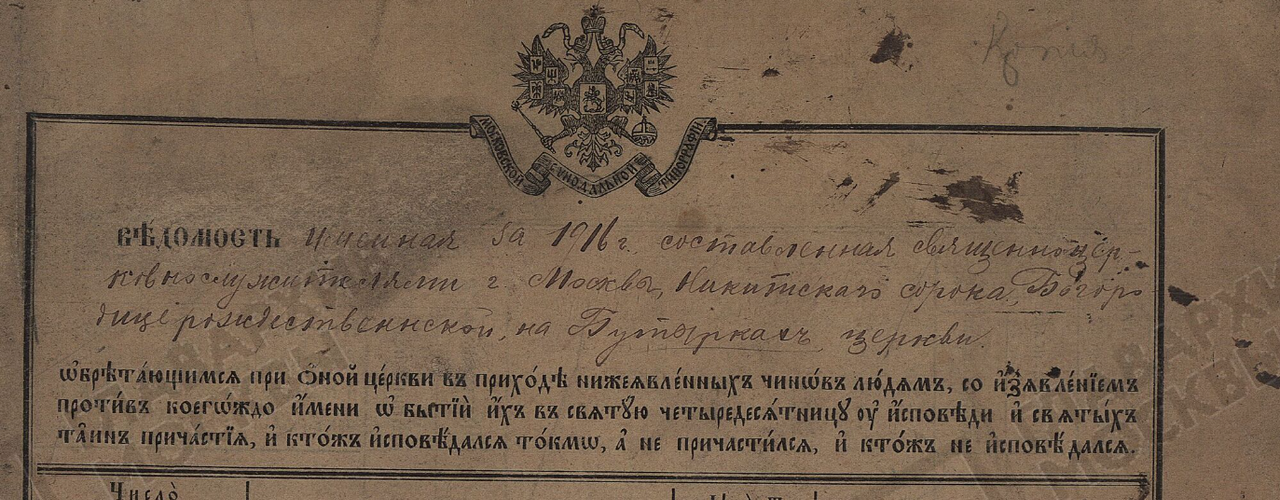 Копія
МОСКОВСКОЙ СѴНОДАЛЬНОЙ ТИПОГРАФІИ
ВѢ́ДОМОСТЬ именная за 1916 г. составленная священноцер-
ковнослужителями г. Москвы, Никитскаго сорока, Богоро-
дицерождественнской, на Бутыркахъ, церкви.
ѡ҆брѣта́ющимся при ѻ҆́ной це́ркви въ прихо́дѣ нижеявле́нныхъ чинѡ́въ лю́дямъ, со и҆з̾явле́нїемъ
проти́въ коегѡ́ждо и҆́мени ѡ҆ бытїи̑ и҆́хъ въ святу́ю четыредеся́тницу ᲂу҆ и҆́сповѣди и҆ святы́хъ
та́инъ прича́стїя, и҆ кто́жъ и҆сповѣ́дался то́кмѡ, а҆ не причасти́лся, и҆ кто́жъ не и҆сповѣ́дался.
Число̀